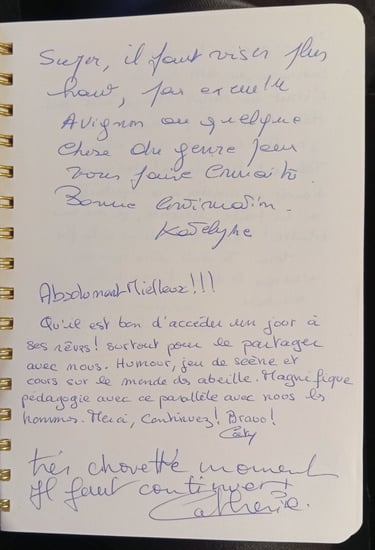 Super, il faut viser plus
haut, par exemple
Avignon ou quelque
chose du genre pour
vous faire connaitre.
Bonne continuation.
Katelyne
Absolument Mielleux!!!
Qu'il est bon d'accéder un jour à
ses rêves! surtout pour le partager
avec nous. Humour, jeu de scène et
cours sur le monde des abeille. Magnifique
pédagogie avec ce parallèle avec nous les
hommes. Merci, Continuez! Bravo!
très chouette moment
Il faut continuer
Catherine.